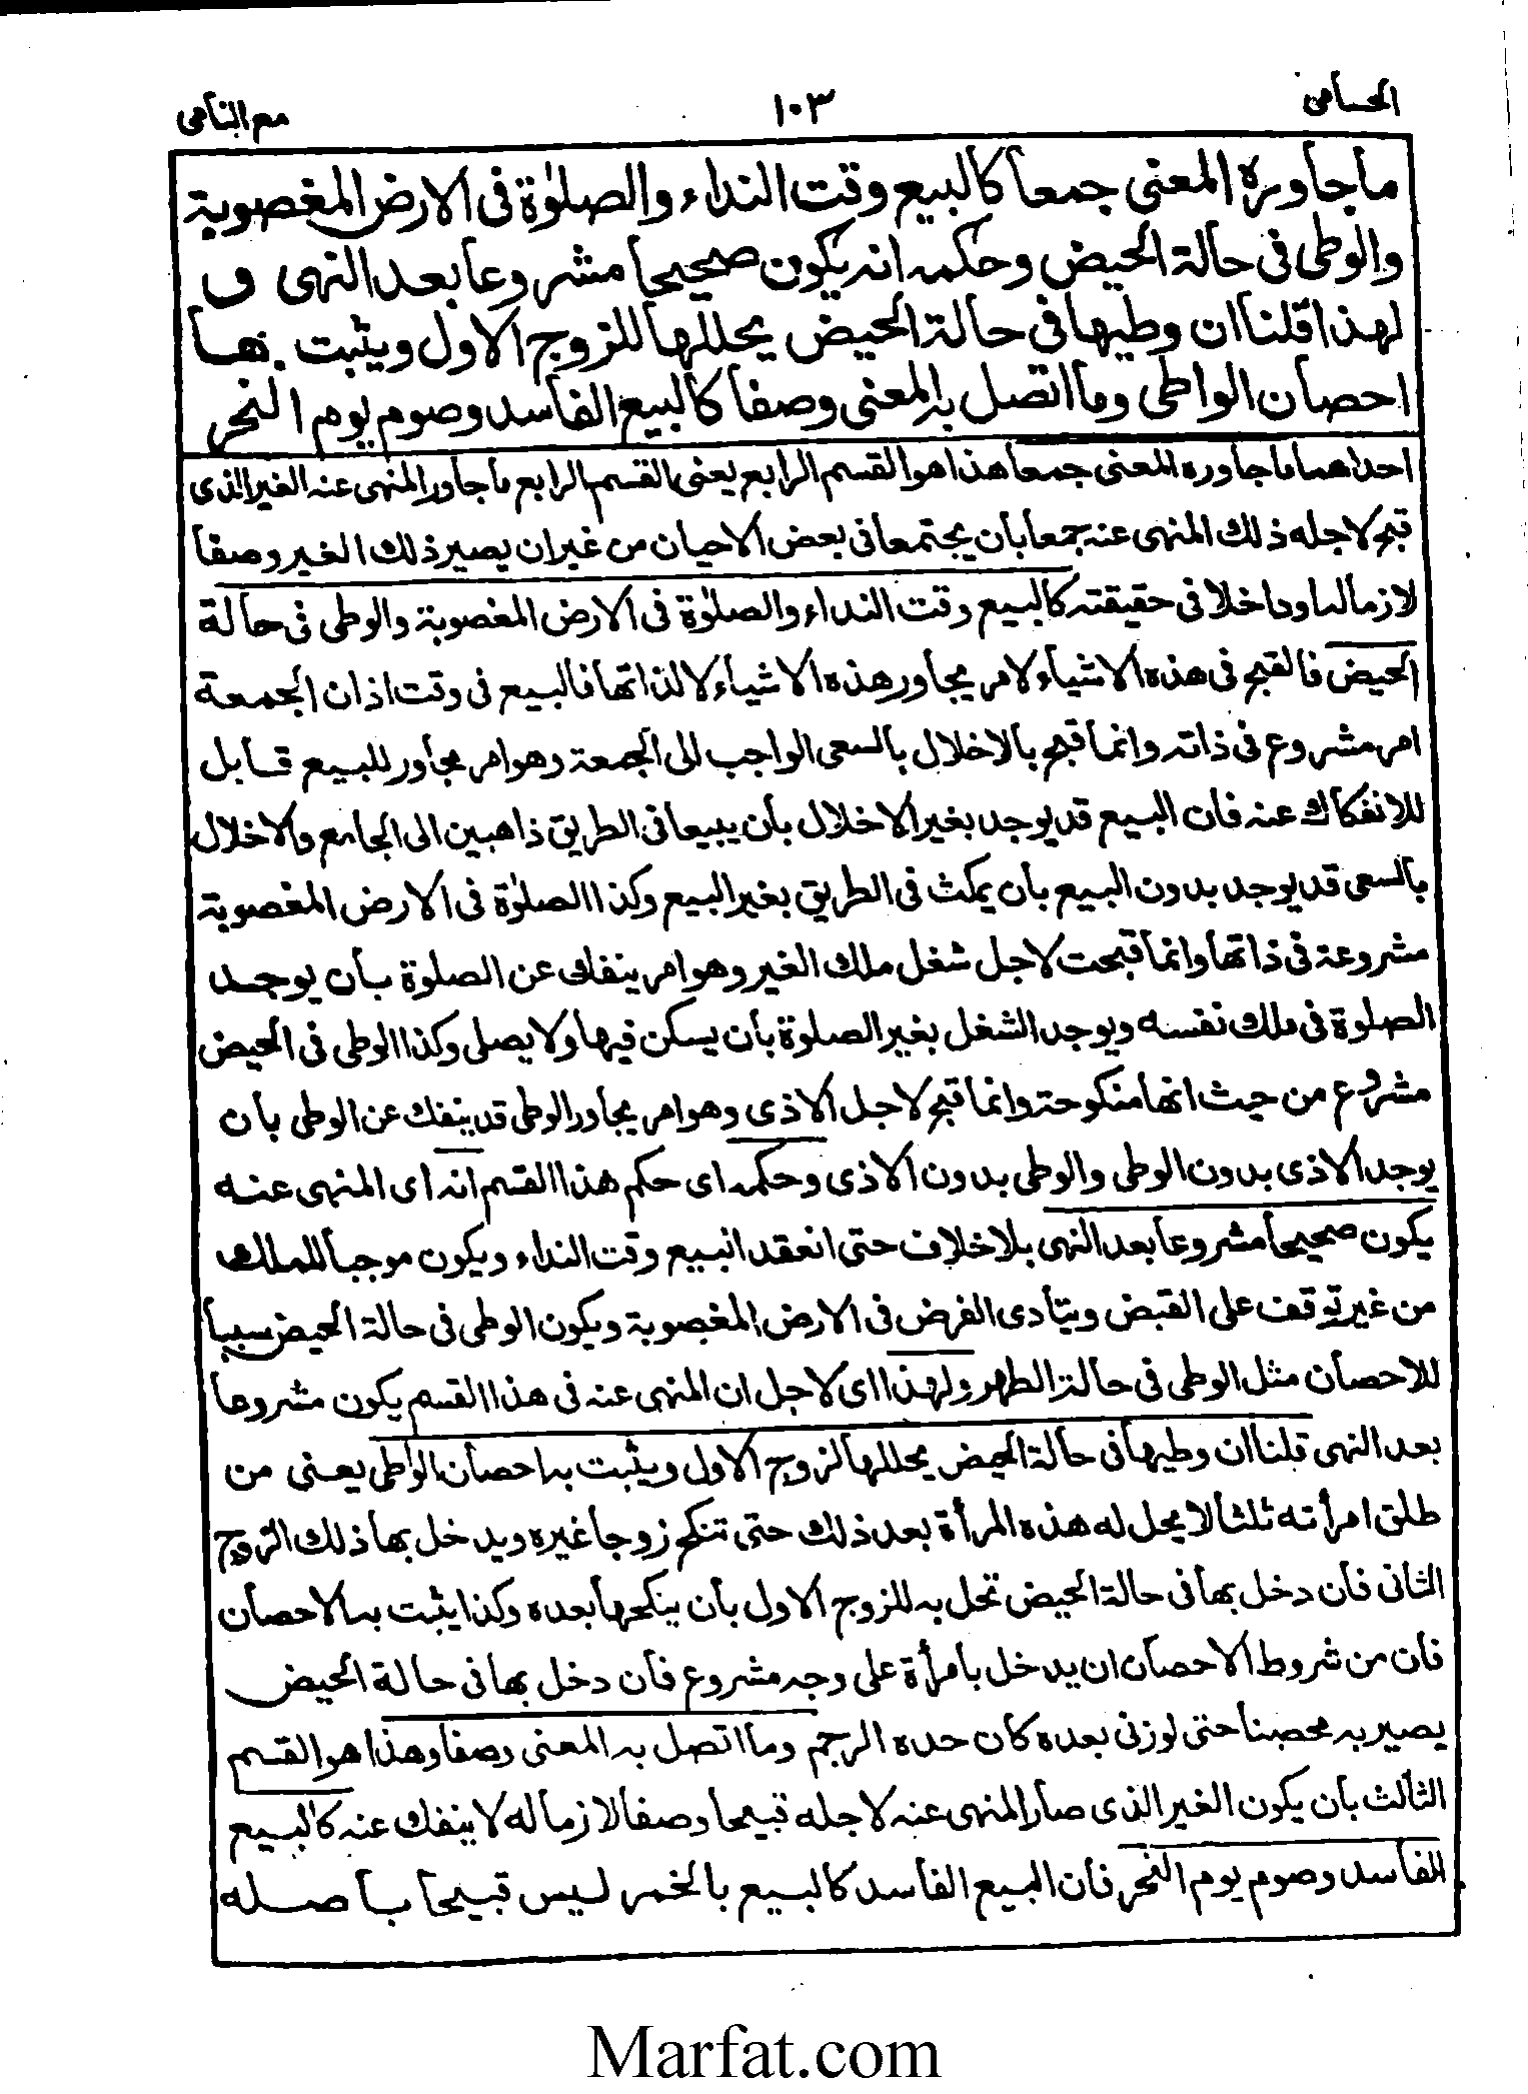 الحسامی ١٠٣ مع النامی
ما جاوره المعنی جمعا کالبیع وقت النداء والصلوٰة فی الارض المغصوبة
والوطی فی حالة الحیض وحکمه انه یکون صحیحا مشروعا بعد النهی و
لهذا قلنا ان وطیها فی حالة الحیض یحللها للزوج الاول ویثبت بها
احصان الواطی وما اتصل به المعنی وصفا کالبیع الفاسد وصوم یوم النحر
احداهما ما جاوره المعنی جمعا هذا هو القسم الرابع یعنی القسم الرابع ما جاور المنهی عنه الغیر الذی
قبح لاجله ذلك المنهی عنه جمعا بان یجتمعا فی بعض الاحیان من غیر ان یصیر ذلك الغیر وصفا
لازما له او داخلا فی حقیقته کالبیع وقت النداء والصلوٰة فی الارض المغصوبة والوطی فی حالة
الحیض فالقبح فی هذه الاشیاء لامر یجاور هذه الاشیاء لا لذاتها فالبیع فی وقت اذان الجمعة
امر مشروع فی ذاته وانما قبح بالاخلال بالسعی الواجب الی الجمعة وهو امر مجاور للبیع قابل
للانفکاك عنه فان البیع قد یوجد بغیر الاخلال بان یبیعا فی الطریق ذاهبین الی الجامع والاخلال
بالسعی قد یوجد بدون البیع بان یمکث فی الطریق بغیر البیع وکذا الصلوٰة فی الارض المغصوبة
مشروعة فی ذاتها وانما قبحت لاجل شغل ملك الغیر وهو امر ینفك عن الصلوة بان یوجد
الصلوة فی ملك نفسه ویوجد الشغل بغیر الصلوة بان یسکن فیها ولا یصلی وکذا الوطی فی الحیض
مشروع من حیث انها منکوحته وانما قبح لاجل الاذی وهو امر یجاور الوطی قد ینفك عن الوطی بان
یوجد الاذی بدون الوطی والوطی بدون الاذی وحکمه ای حکم هذا القسم انه ای المنهی عنه
یکون صحیحا مشروعا بعد النهی بلا خلاف حتی انعقد البیع وقت النداء ویکون موجبا للملك
من غیر توقف علی القبض ویتأدی الفرض فی الارض المغصوبة ویکون الوطی فی حالة الحیض سببا
للاحصان مثل الوطی فی حالة الطهر ولهذا ای لاجل ان المنهی عنه فی هذا القسم یکون مشروعا
بعد النهی قلنا ان وطیها فی حالة الحیض یحللها لزوج الاول ویثبت به احصان الواطی یعنی من
طلق امرأته ثلثا لا یحل له هذه المرأة بعد ذلك حتی تنکح زوجا غیره ویدخل بها ذلك الزوج
الثانی فان دخل بها فی حالة الحیض تحل به للزوج الاول بان ینکحها بعده وکذا یثبت به الاحصان
فان من شروط الاحصان ان یدخل بامرأة علی وجه مشروع فان دخل بها فی حالة الحیض
یصیر به محصنا حتی لو زنی بعده کان حده الرجم وما اتصل به المعنی وصفا وهذا هو القسم
الثالث بان یکون الغیر الذی صار المنهی عنه لاجله قبیحا وصفا لازما له لا ینفك عنه کالبیع
الفاسد وصوم یوم النحر فان البیع الفاسد کالبیع بالخمر لیس قبیحا باصله
Marfat.com